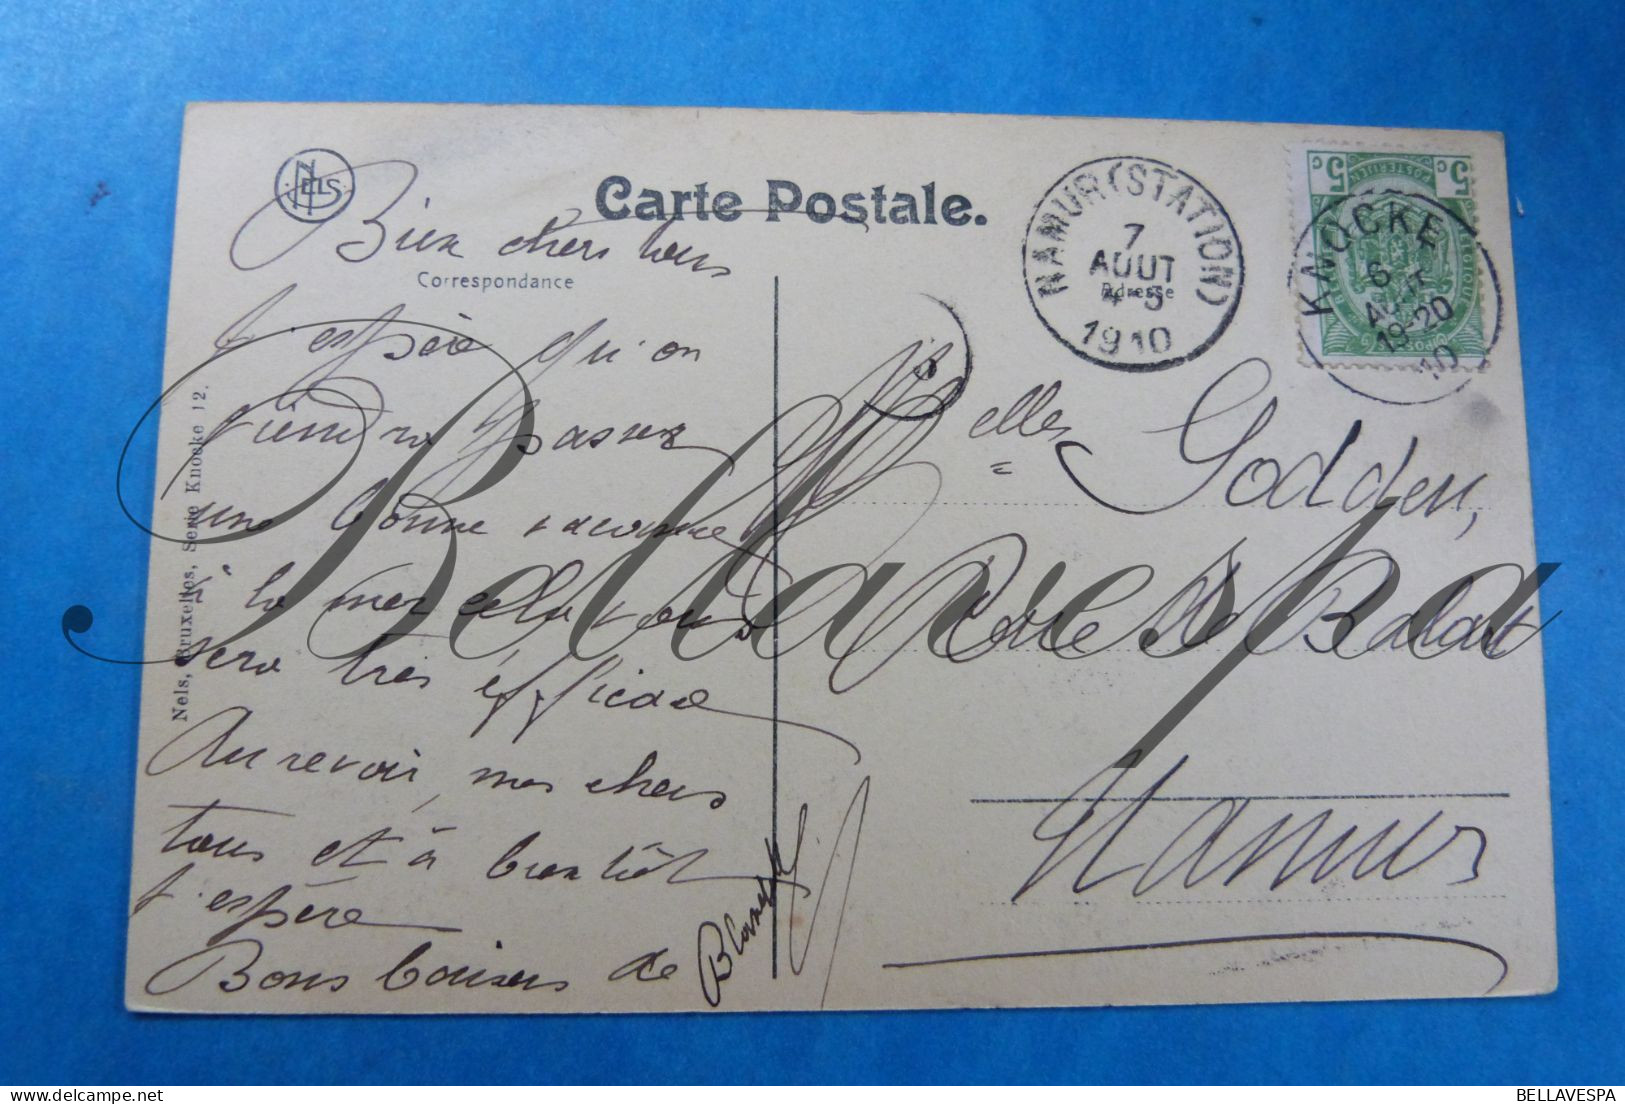 NELS
Carte Postale.
Correspondance
Adresse
Nels, Bruxelles, Serie Knocke 12.
Bien chers tous
J'espère qu'on
viendra passer
une bonne
à la mer cela vous
sera très éfficace
Au revoir, mes chers
tous et à bientôt
j'espère
Bons baisers de
NAMUR (STATION)
7
AOUT
4-5
1910
5c 5c
POSTERIJEN
BELGIQUE
KNOCKE
6
AOUT
19-20
10
Melles Godden,
Rue de Balart
Namur
Bellavespa
BELLAVESPA